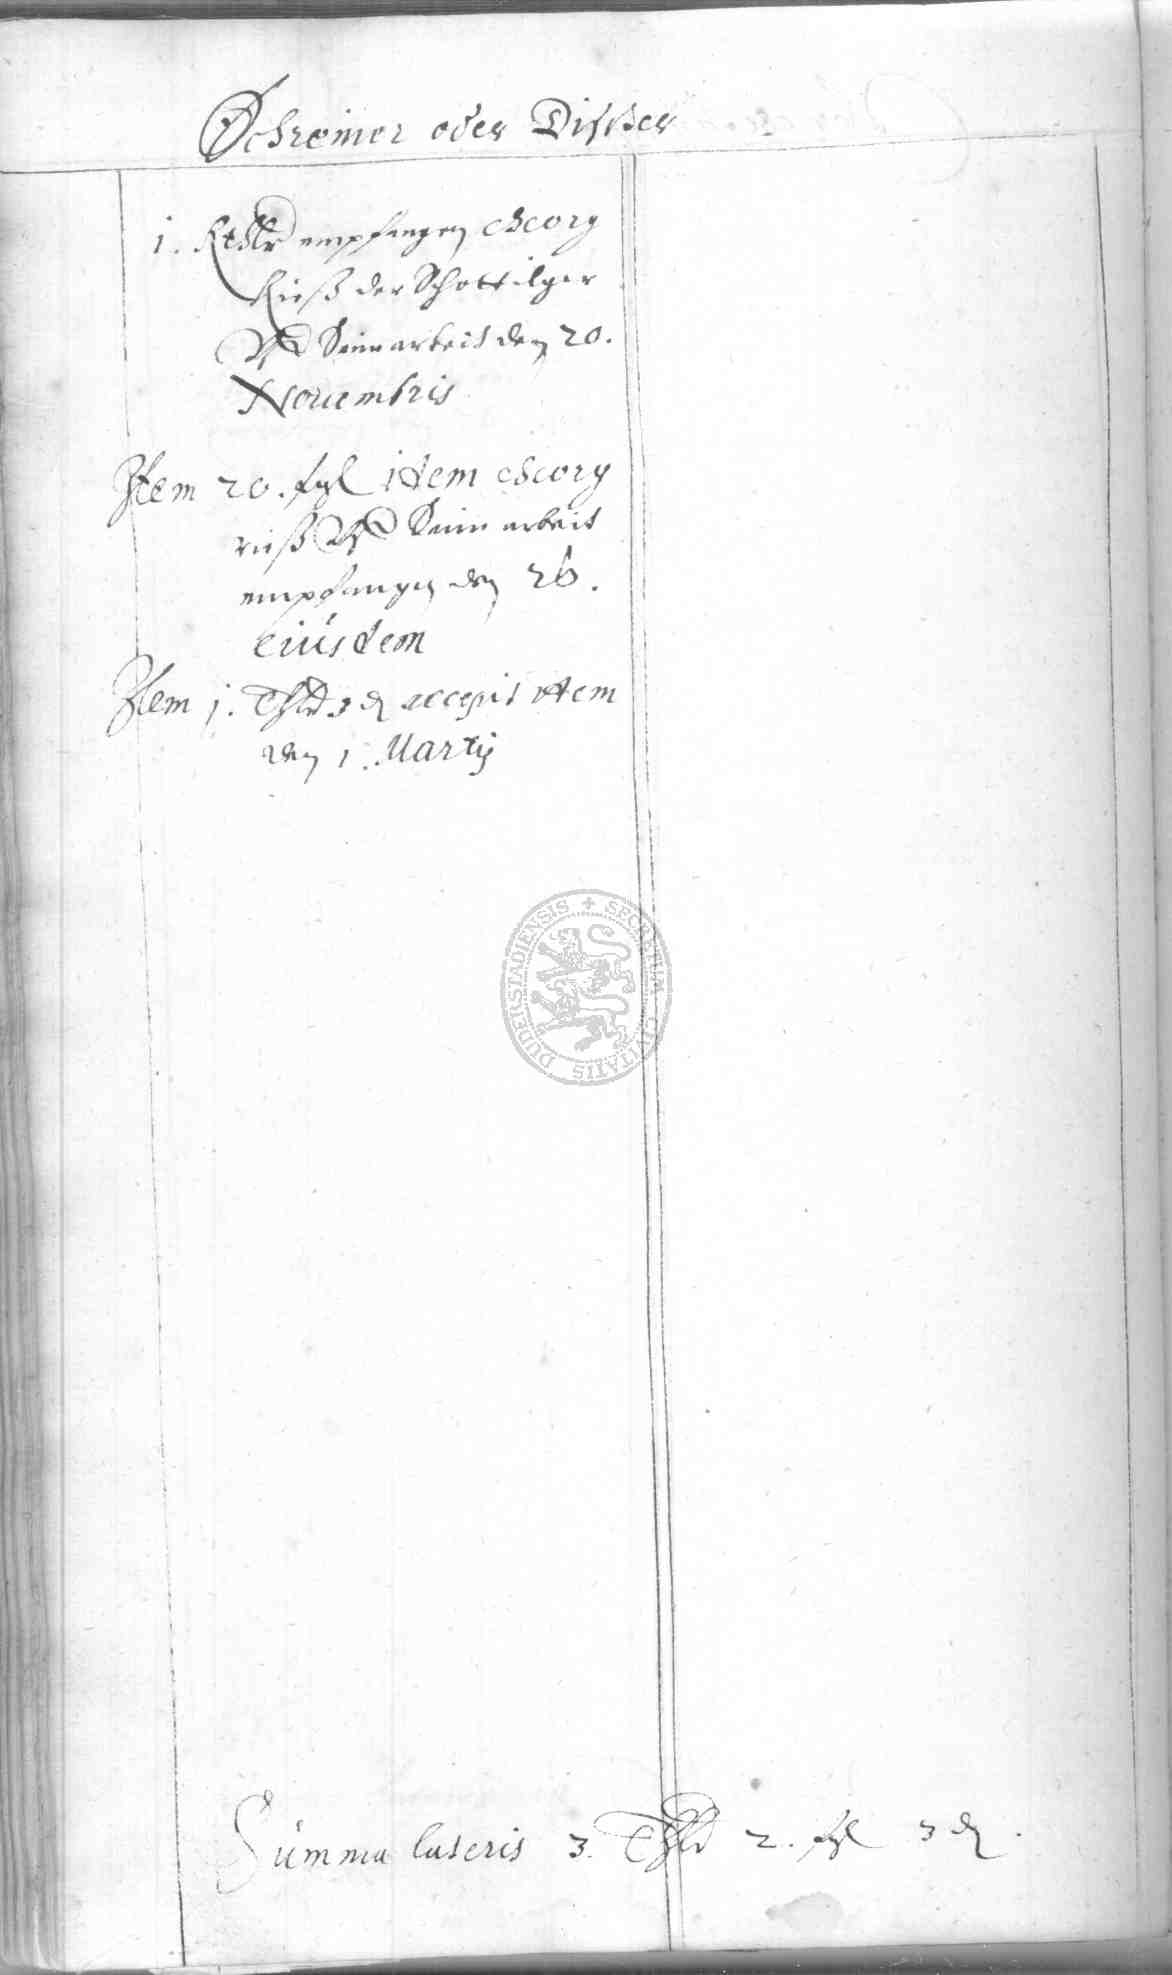 Schreiner oder Discher
1. Rthlr empfangen Georg
Rieß der Schottilger
Vf Sein arbeit den 20.
Nouembris
Item 20. ßgl item Georg
rieß Vf Sein arbeit
empfangen den 26.
eiusdem
Item 1. Thlr 3 ₰ accepit item
den 1. Martij
SECRETUM CIVITATIS DUDERSTADIENSIS
Summa lateris 3. Thlr 2. ßgl 3 ₰.